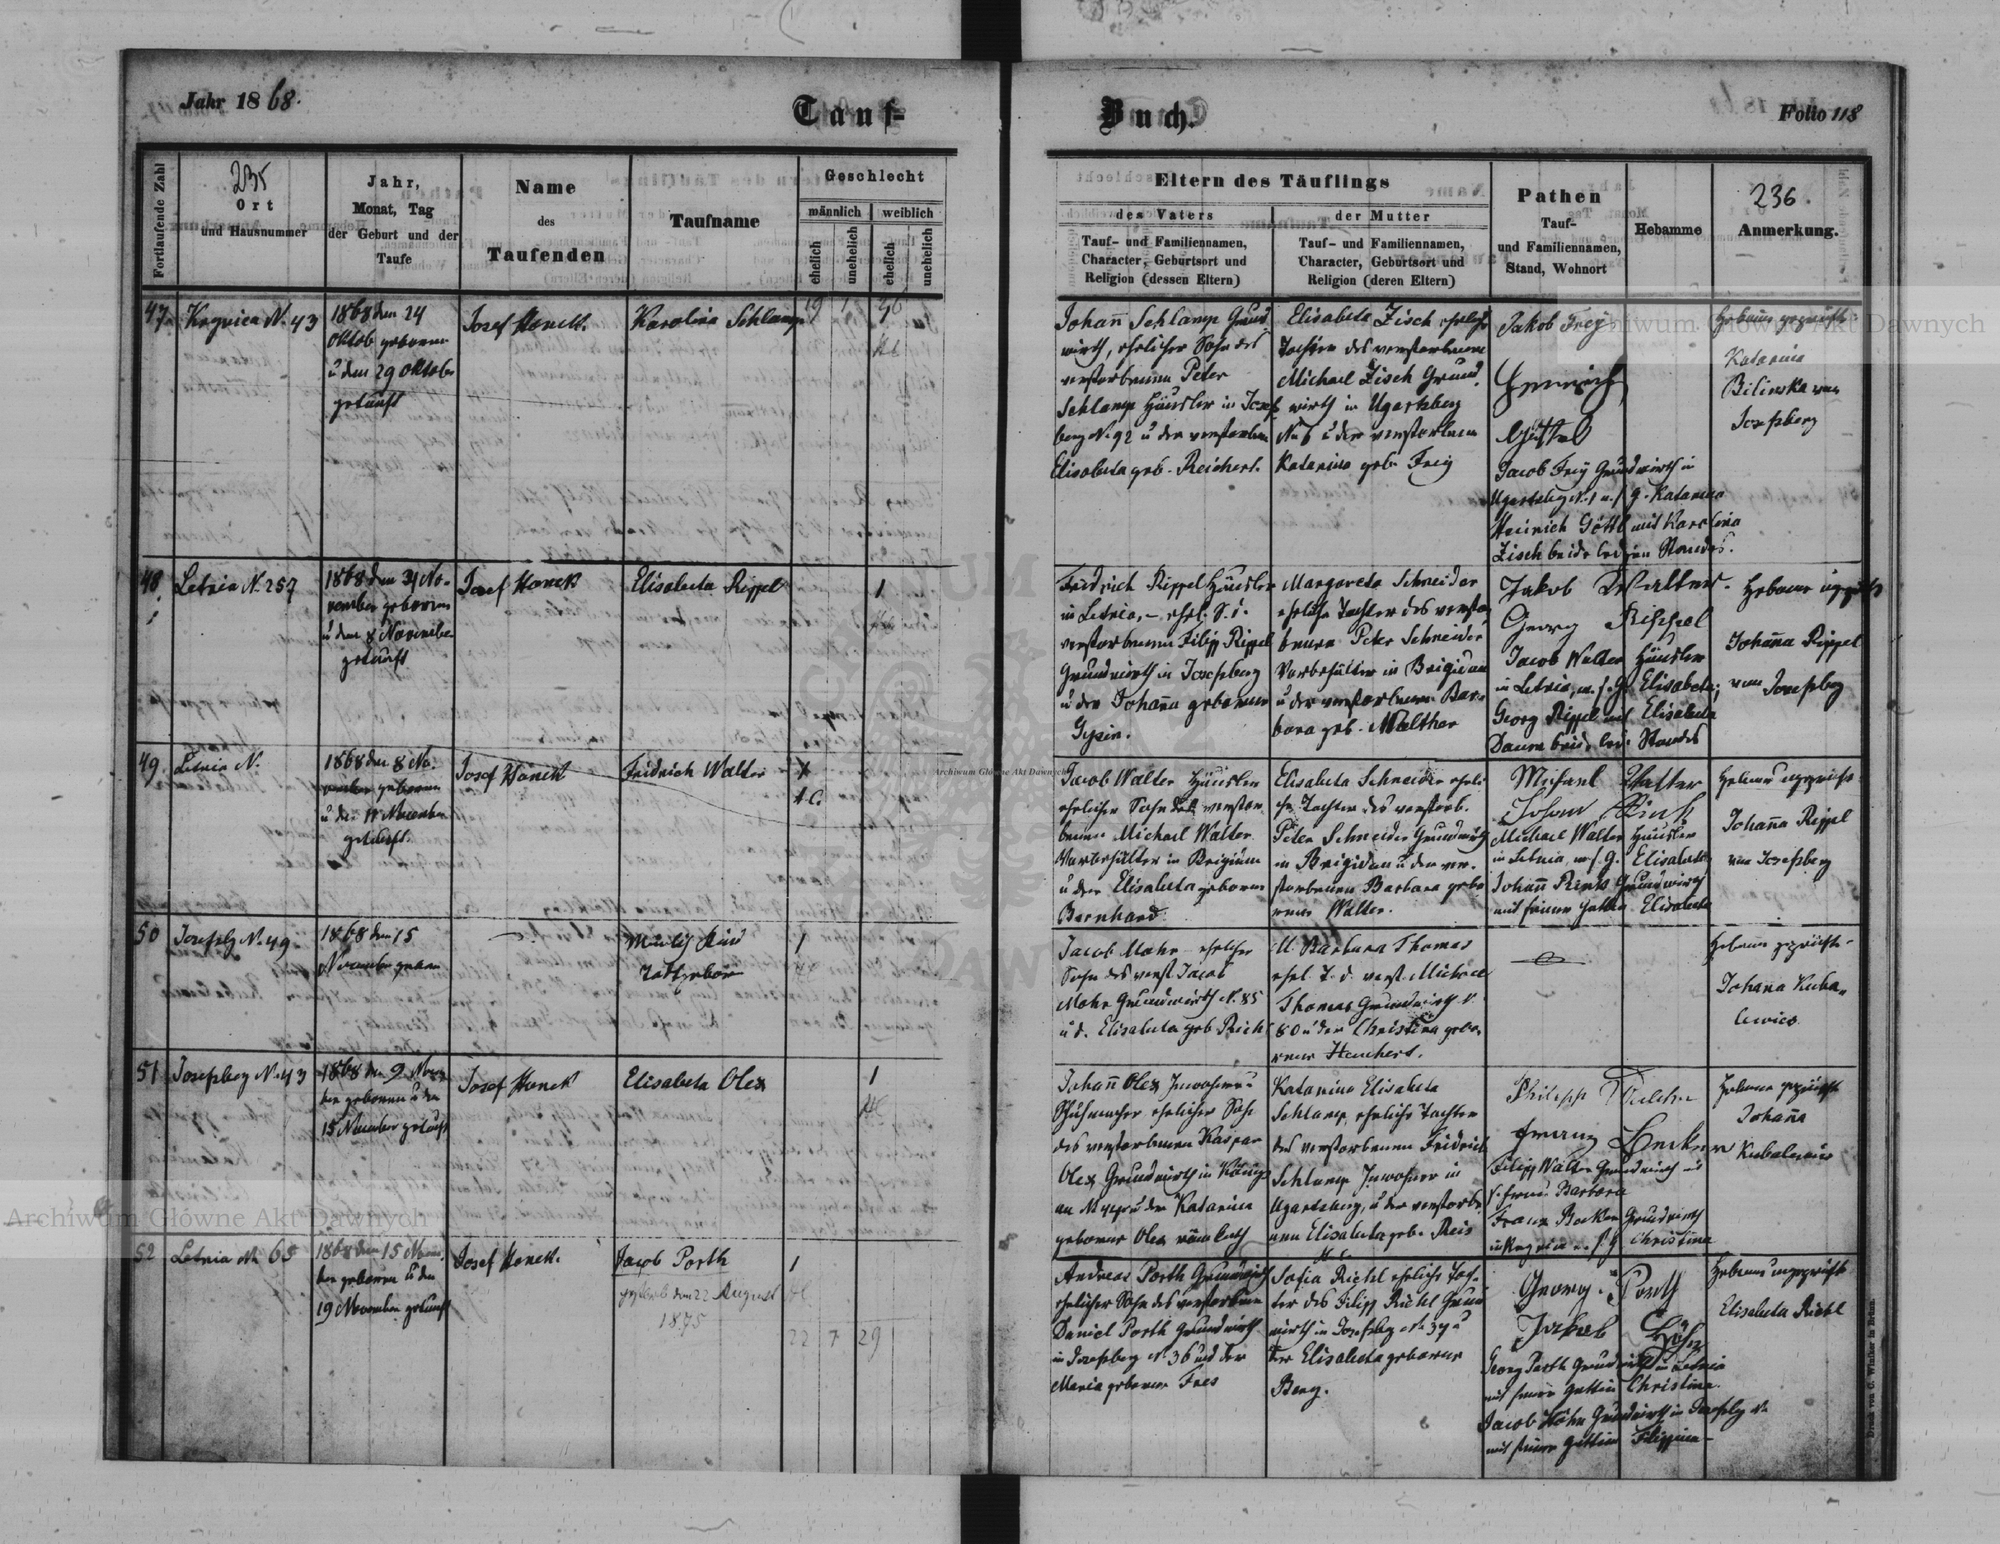 Jahr 1868.
Tauf-
Buch.
Folio 118
Fortlaufende Zahl
235
Ort
und Hausnummer
Jahr,
Monat, Tag
der Geburt und der
Taufe
Name
des
Taufenden
Taufname
Geschlecht
männlich
weiblich
ehelich
unehelich
ehelich
unehelich
Eltern des Täuflings
des Vaters
der Mutter
Tauf- und Familiennamen,
Character, Geburtsort und
Religion (dessen Eltern)
Tauf- und Familiennamen,
Character, Geburtsort und
Religion (deren Eltern)
Pathen
Tauf-
und Familiennamen,
Stand, Wohnort
Hebamme
236.
Anmerkung.
47.
N. 43
1868 den 24
Oktob geboren
u den 29 Oktober
getauft
Josef Honek.
Karolina Schlamp
Johann Schlamp Grund
wirth, ehelicher Sohn des
verstorbenen Peter
Schlamp Häusler in Josef
berg N. 92 u der verstorbenen
Elisabeta geb. Reichert.
Elisabeta Zisch eheliche
Tochter des verstorbenen
Michael Zisch Grund
wirth in Ugartsberg
No 6 u der verstorbenen
Katarina geb. Frey
Jakob Frey
Heinrich
Göttel
Jacob Frey Grundwirth in
Ugartsbg N. 1 m. s. g. Katarina
Heinrich Göttl mit Karolina
Zisch beide ledigen Standes.
Hebame geprüfte
Katarina
Bilinska von
Josefsberg
48
Letnia N. 257
1868 den No-
vember geboren
u den 8 November
getauft
Josef Honek
Elisabeta Rippel
1
Fridrich Rippel Häusler
in Letnia, ehel. S. d.
verstorbenen Filipp Rippel
Grundwirth in Josefsberg
u der Johanna geborenen
Margareta Schneider
eheliche Tochter des verstor
benen Peter Schneider
in Brigidau
u der verstorbenen Bar-
bara geb. Walther
Jakob Walter.
Georg Rippel
Jacob Walter Häusler
in Letnia, m. s. g. Elisabeta;
Georg Rippel mit Elisabeta
Daum beide led. Standes
Hebame ungeprüfte
Johanna Rippel
von Josefsberg
49
Letnia N.
1868 den 8 No-
vember geboren
u den November
getauft.
Josef Honek
Fridrich Walter
Jacob Walter Häusler
ehelicher Sohn des verstor
benen Michael Walter
in Brigidau
u der Elisabeta geborene
Bernhard
Elisabeta Schneider eheli
che Tochter des verstorb.
Peter Schneider Grundwirth
in Brigidau u der ver-
storbenen Barbara gebo
rene Walter.
Michael Walter
Johann Rink
Michael Walter Häusler
in Letnia, m. s. g. Elisabeta
Johann Rink Grundwirth
mit seiner Gattin Elisabeta
Hebame ungeprüfte
Johanna Rippel
von Josefsberg
50
Josefsbg N. 49
1868 den 15
November geboren
Männlich Kind
Todtgeboren
1
Jacob Mohr ehelicher
Sohn des verst. Jacob
Mohr Grundwirth N. 85
u d. Elisabeta geb. Reich
M. Barbara Thomas
ehel. T. d. verst. Michael
Thomas Grundwirth N.
80 u der Christina gebo-
rene
Hebame geprüfte
Johana Kuba-
lewicz
51
Josefsberg N. 43
1868 den 9 Novem
ber geboren u den
15 November getauft
Josef Honek
Elisabeta Olex
1
Johann Olex Inwohner u
Schuhmacher ehelicher Sohn
des verstorbenen Kaspar
Olex Grundwirth in Königs
au N u der Katarina
geborene Olex
Katarina Elisabeta
Schlamp, eheliche Tochter
des verstorbenen Fridrich
Schlamp Inwohner in
Ugartsberg, u der verstorbe
nen Elisabeta geb. Reis
Philipp Walther
Franz Becker
Filipp Walter Grundwirth
s. Frau Barbara
Franz Becker Grundwirth
m. s. g. Christina
Hebame geprüfte
Johanna
Kubalewicz
52
Letnia N. 65
1868 den 15 Novem
ber geboren u den
19 November getauft
Josef Honek.
Jacob Porth
gestorb den 22 August
1875
1
22 7 29
Andreas Porth Grundwirth
ehelicher Sohn des verstorbenen
Daniel Porth Grundwirth
in Josefsberg N. 36 und der
Maria geborene
Sofia Riehl eheliche Toch-
ter des Filipp Riehl Grund
wirth in Josefsbg N. 37 u
der Elisabeta geborene
Berg.
Georg Porth
Jakob Höhn
Georg Porth Grundwirth in Letnia
mit seiner Gattin Christina.
Jacob Höhn Grundwirth in Josefsbg N.
mit seiner Gattin Filippina
Hebame ungeprüfte
Elisabeta Riehl
Druck von C. Winiker in Brünn.
Archiwum Główne Akt Dawnych
Archiwum Główne Akt Dawnych
Archiwum Główne Akt Dawnych